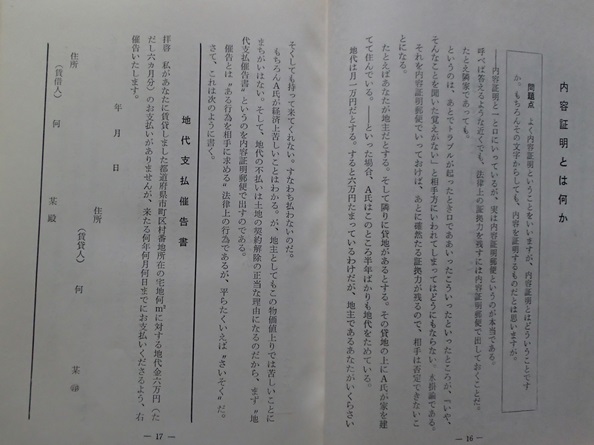 内容証明とは何か
問題点　よく内容証明ということをいいますが、内容証明とはどういうことです
か。もちろんその文字からしても、内容を証明するものだとは思いますが。
内容証明と一と口にいっているが、実は内容証明郵便というのが本当である。
呼べば答えるような近くでも、法律上の証拠力を残すには内容証明郵便で出しておくことだ。
たとえ隣家であっても。
というのは、あとでトラブルが起ったとき口でああいったこういったといったところが、「いや、
そんなことを聞いた覚えがない」と相手方にいわれてしまってはどうにもならない。水掛論である。
それを内容証明郵便でいっておけば、あとに確然たる証拠力が残るので、相手は否定できないこ
とになる。
たとえばあなたが地主だとする。そして隣りに貸地があるとする。その貸地の上にA氏が家を建
てて住んでいる。――といった場合、A氏はこのところ半年ばかりも地代をためている。
地代は月一万円だとする。すると六万円たまっているわけだが、地主であるあなたがいくらさい
— 16 —
そくしても持って来てくれない。すなわち払わないのだ。
もちろんA氏が経済上苦しいことはわかる。が、地主としてもこの物価値上りでは苦しいことに
まちがいはない。そして、地代の不払いは土地の契約解除の正当な理由になるのだから、まず〝地
代支払催告書〟というのを内容証明郵便で出すのである。
催告とは〝ある行為を相手に求める〟法律上の行為であるが、平らたくいえば〝さいそく〟だ。
さて、これは次のように書く。
地代支払催告書
拝啓　私があなたに賃貸しました都道府県市町区村番地所在の宅地何m²に対する地代金六万円（た
だし六ヵ月分）のお支払いがありませんが、来たる何年何月何日までにお支払いくださるよう、右
催告いたします。
年　月　日
住所
（賃貸人）　何　某㊞
住所
（賃借人）　何　某殿
— 17 —